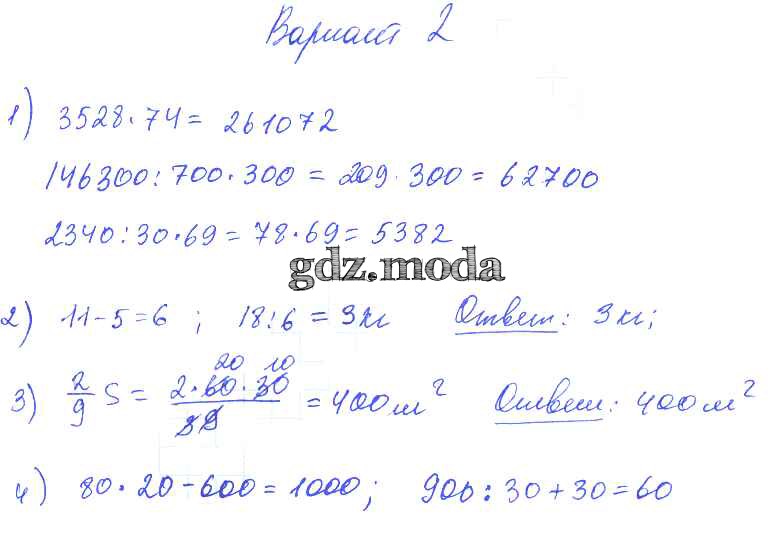 Вариант 2
1) 3528·74 = 261072
146300:700·300 = 209·300 = 62700
2340:30·69 = 78·69 = 5382
gdz.moda
2) 11-5=6 ; 18:6 = 3кг Ответ: 3кг;
20 10
3) 2/9 S = 2·60·30/39 = 400м² Ответ: 400м²
4) 80·20-600=1000; 900:30+30=60